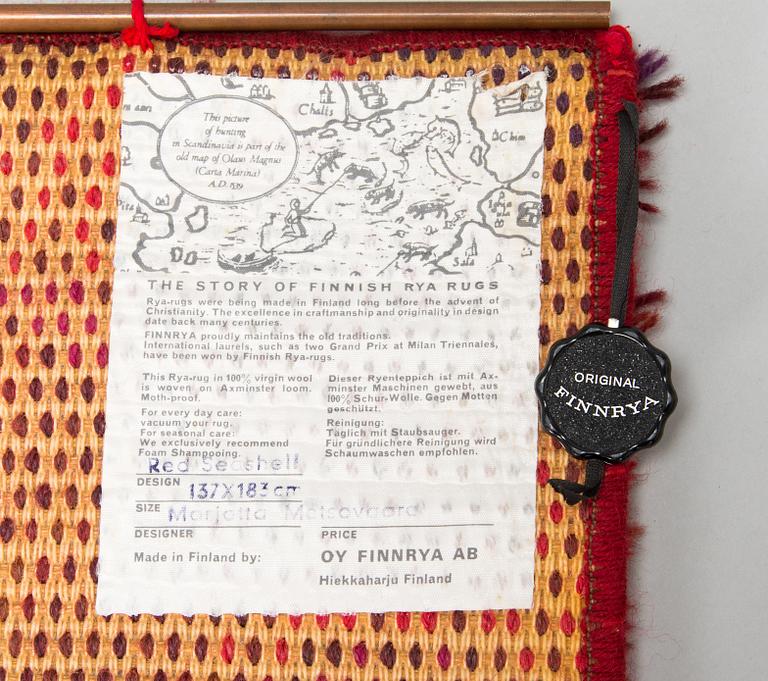 This picture
of hunting
in Scandinavia is part of the
old map of Olaus Magnus
(Carta Marina)
A.D. 1539
Chalis
THE STORY OF FINNISH RYA RUGS
Rya-rugs were being made in Finland long before the advent of
Christianity. The excellence in craftmanship and originality in design
date back many centuries.
FINNRYA proudly maintains the old traditions.
International laurels, such as two Grand Prix at Milan Triennales,
have been won by Finnish Rya-rugs.
This Rya-rug in 100% virgin wool
is woven on Axminster loom.
Moth-proof.
For every day care:
vacuum your rug.
For seasonal care:
We exclusively recommend
Foam Shampooing.
Dieser Ryenteppich ist mit Ax-
minster Maschinen gewebt, aus
100% Schur-Wolle. Gegen Motten
geschützt.
Reinigung:
Täglich mit Staubsauger.
Für gründlichere Reinigung wird
Schaumwaschen empfohlen.
Red Seashell
DESIGN 137X183 cm
SIZE Marjatta Metsovaara
DESIGNER
PRICE
Made in Finland by:
OY FINNRYA AB
Hiekkaharju Finland
ORIGINAL
FINNRYA